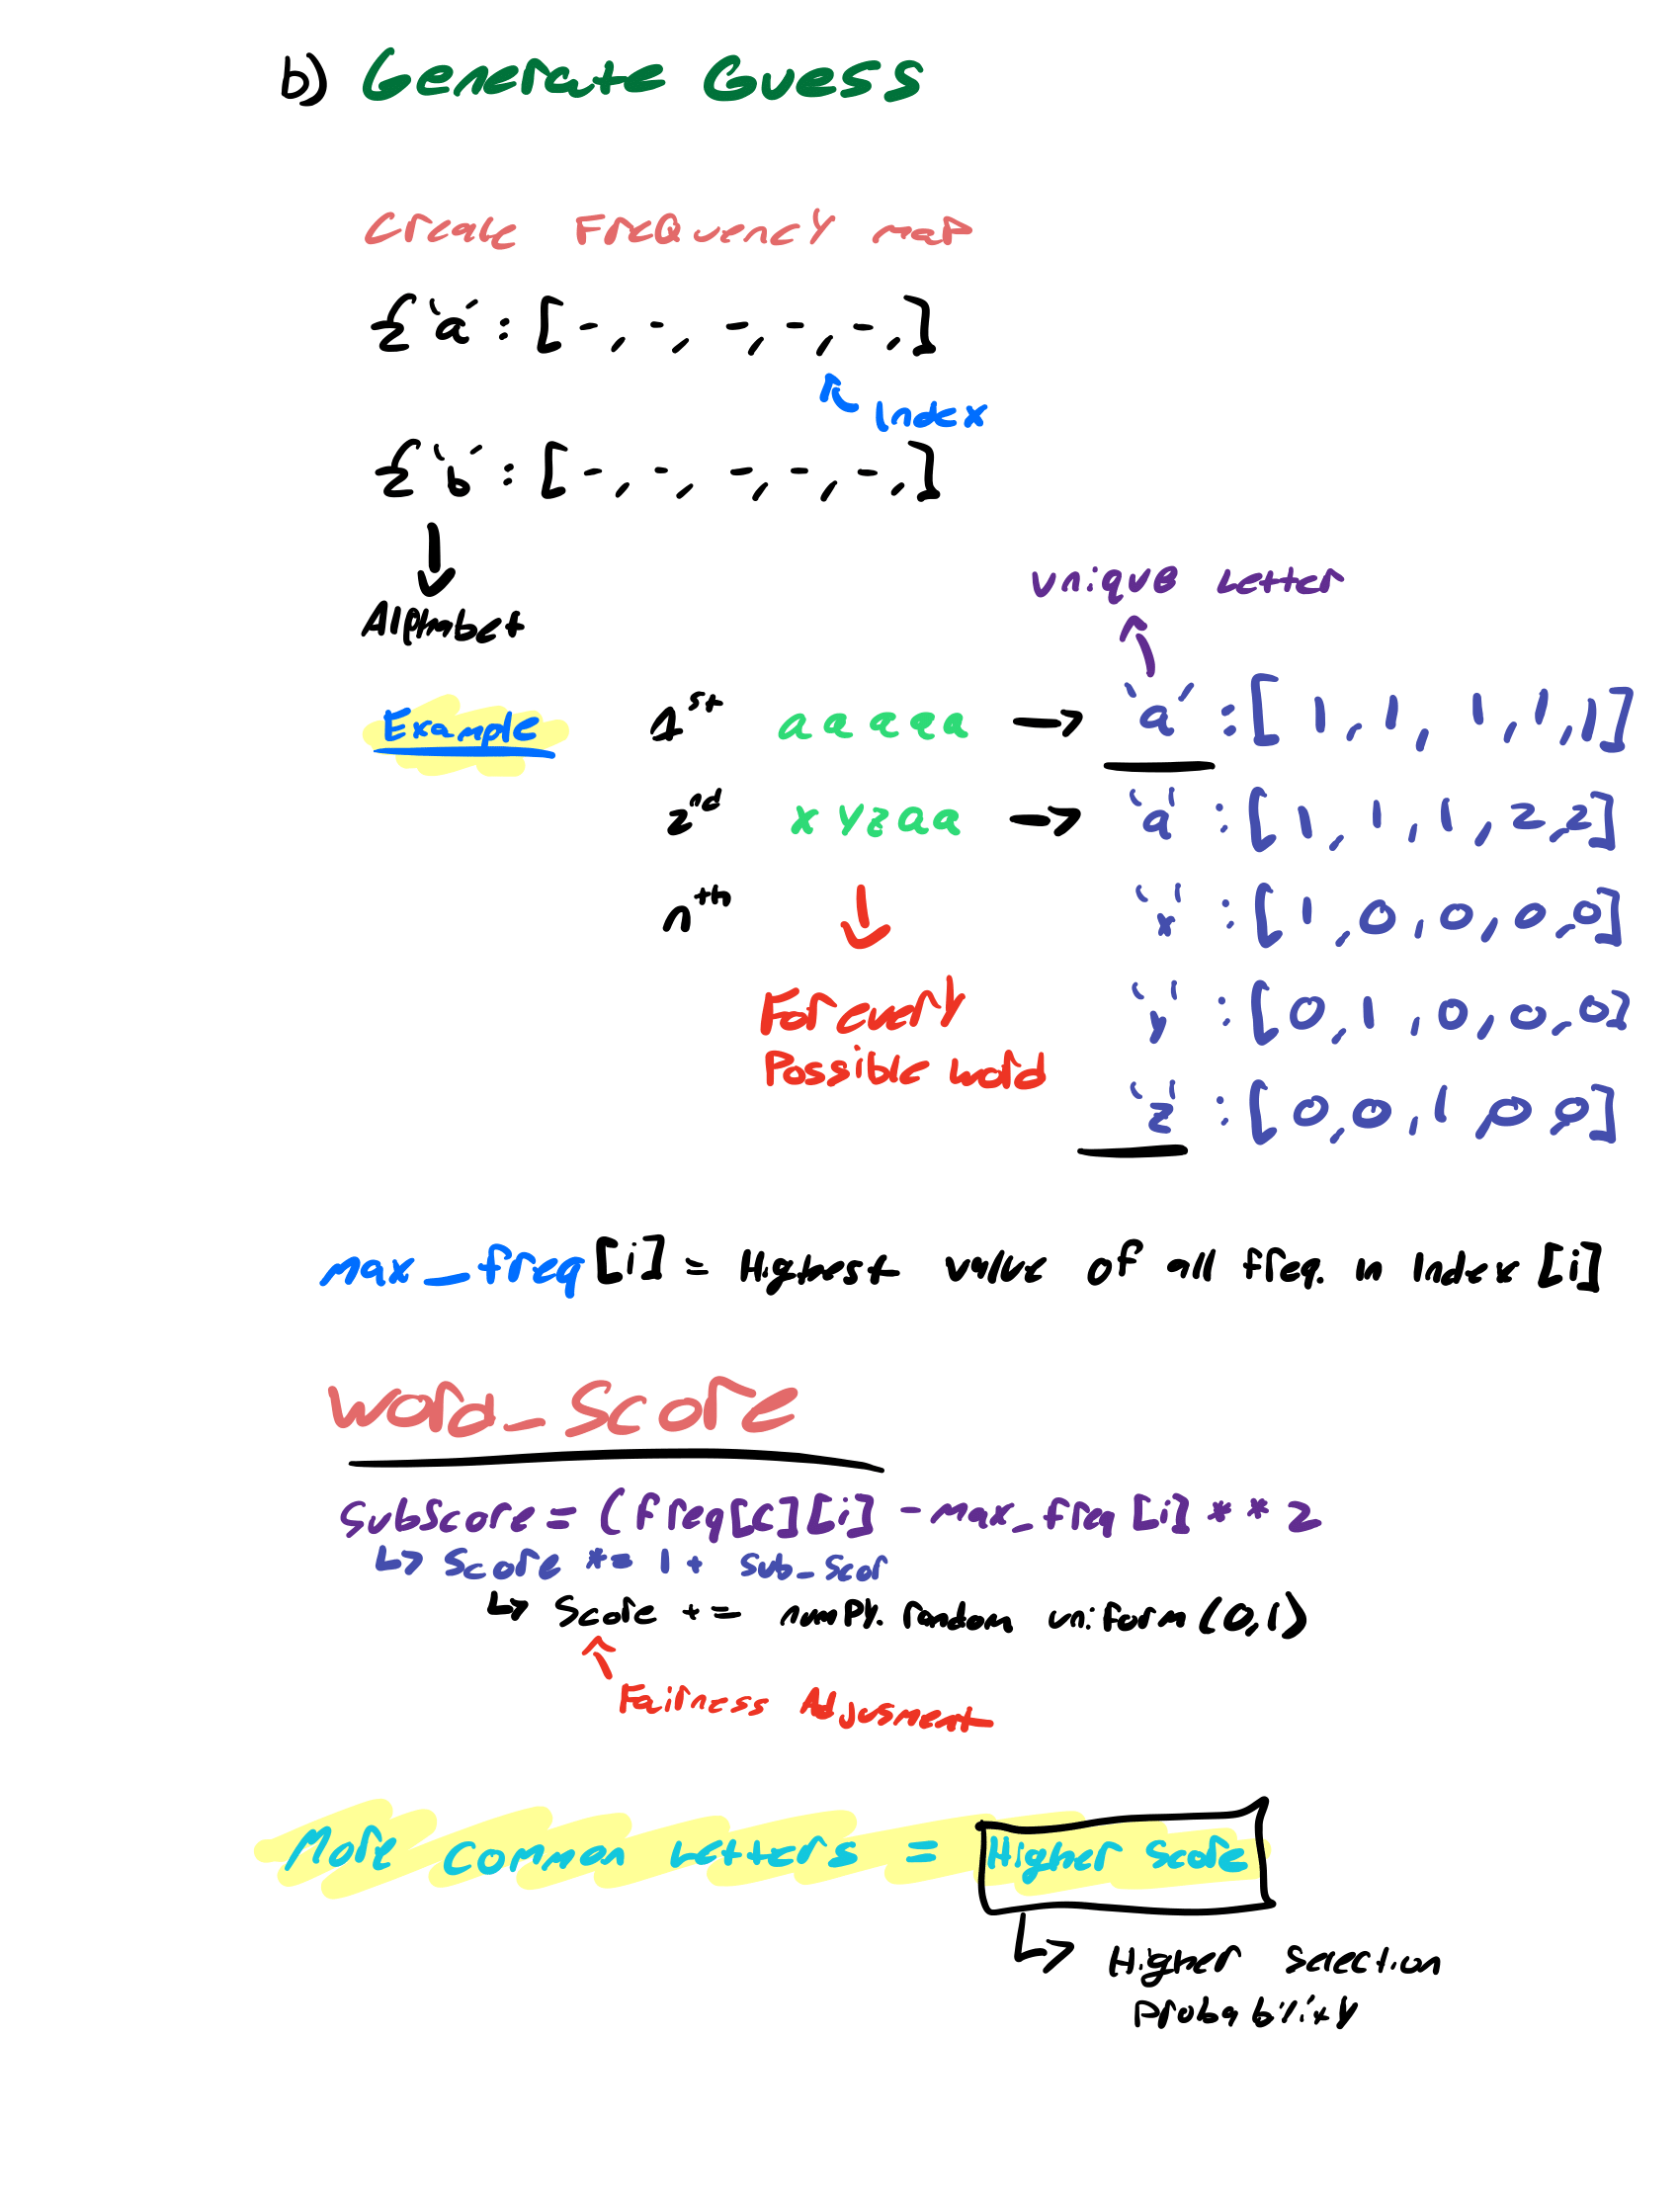 b) Generate Guess
Create Frequency map
{'a' : [-, -, -, -, -,]
Index
{'b' : [-, -, -, -, -,]
Alphabet
unique Letter
Example 1st aaaaa → 'a' : [1, 1, 1, 1, 1]
2nd xyzaa → 'a' : [1, 1, 1, 2, 2]
nth 'x' : [1, 0, 0, 0, 0]
For every 'y' : [0, 1, 0, 0, 0]
Possible word 'z' : [0, 0, 1, 0, 0]
max_freq[i] = Highest value of all freq. in Index [i]
word_score
SubScore = (freq[c][i] - max_freq[i] ** 2
↳ Score *= 1 + sub_scor
↳ Score += numpy.random uniform (0,1)
Fairness Adjusment
More Common Letters = Higher Score
↳ Higher Selection
Probability